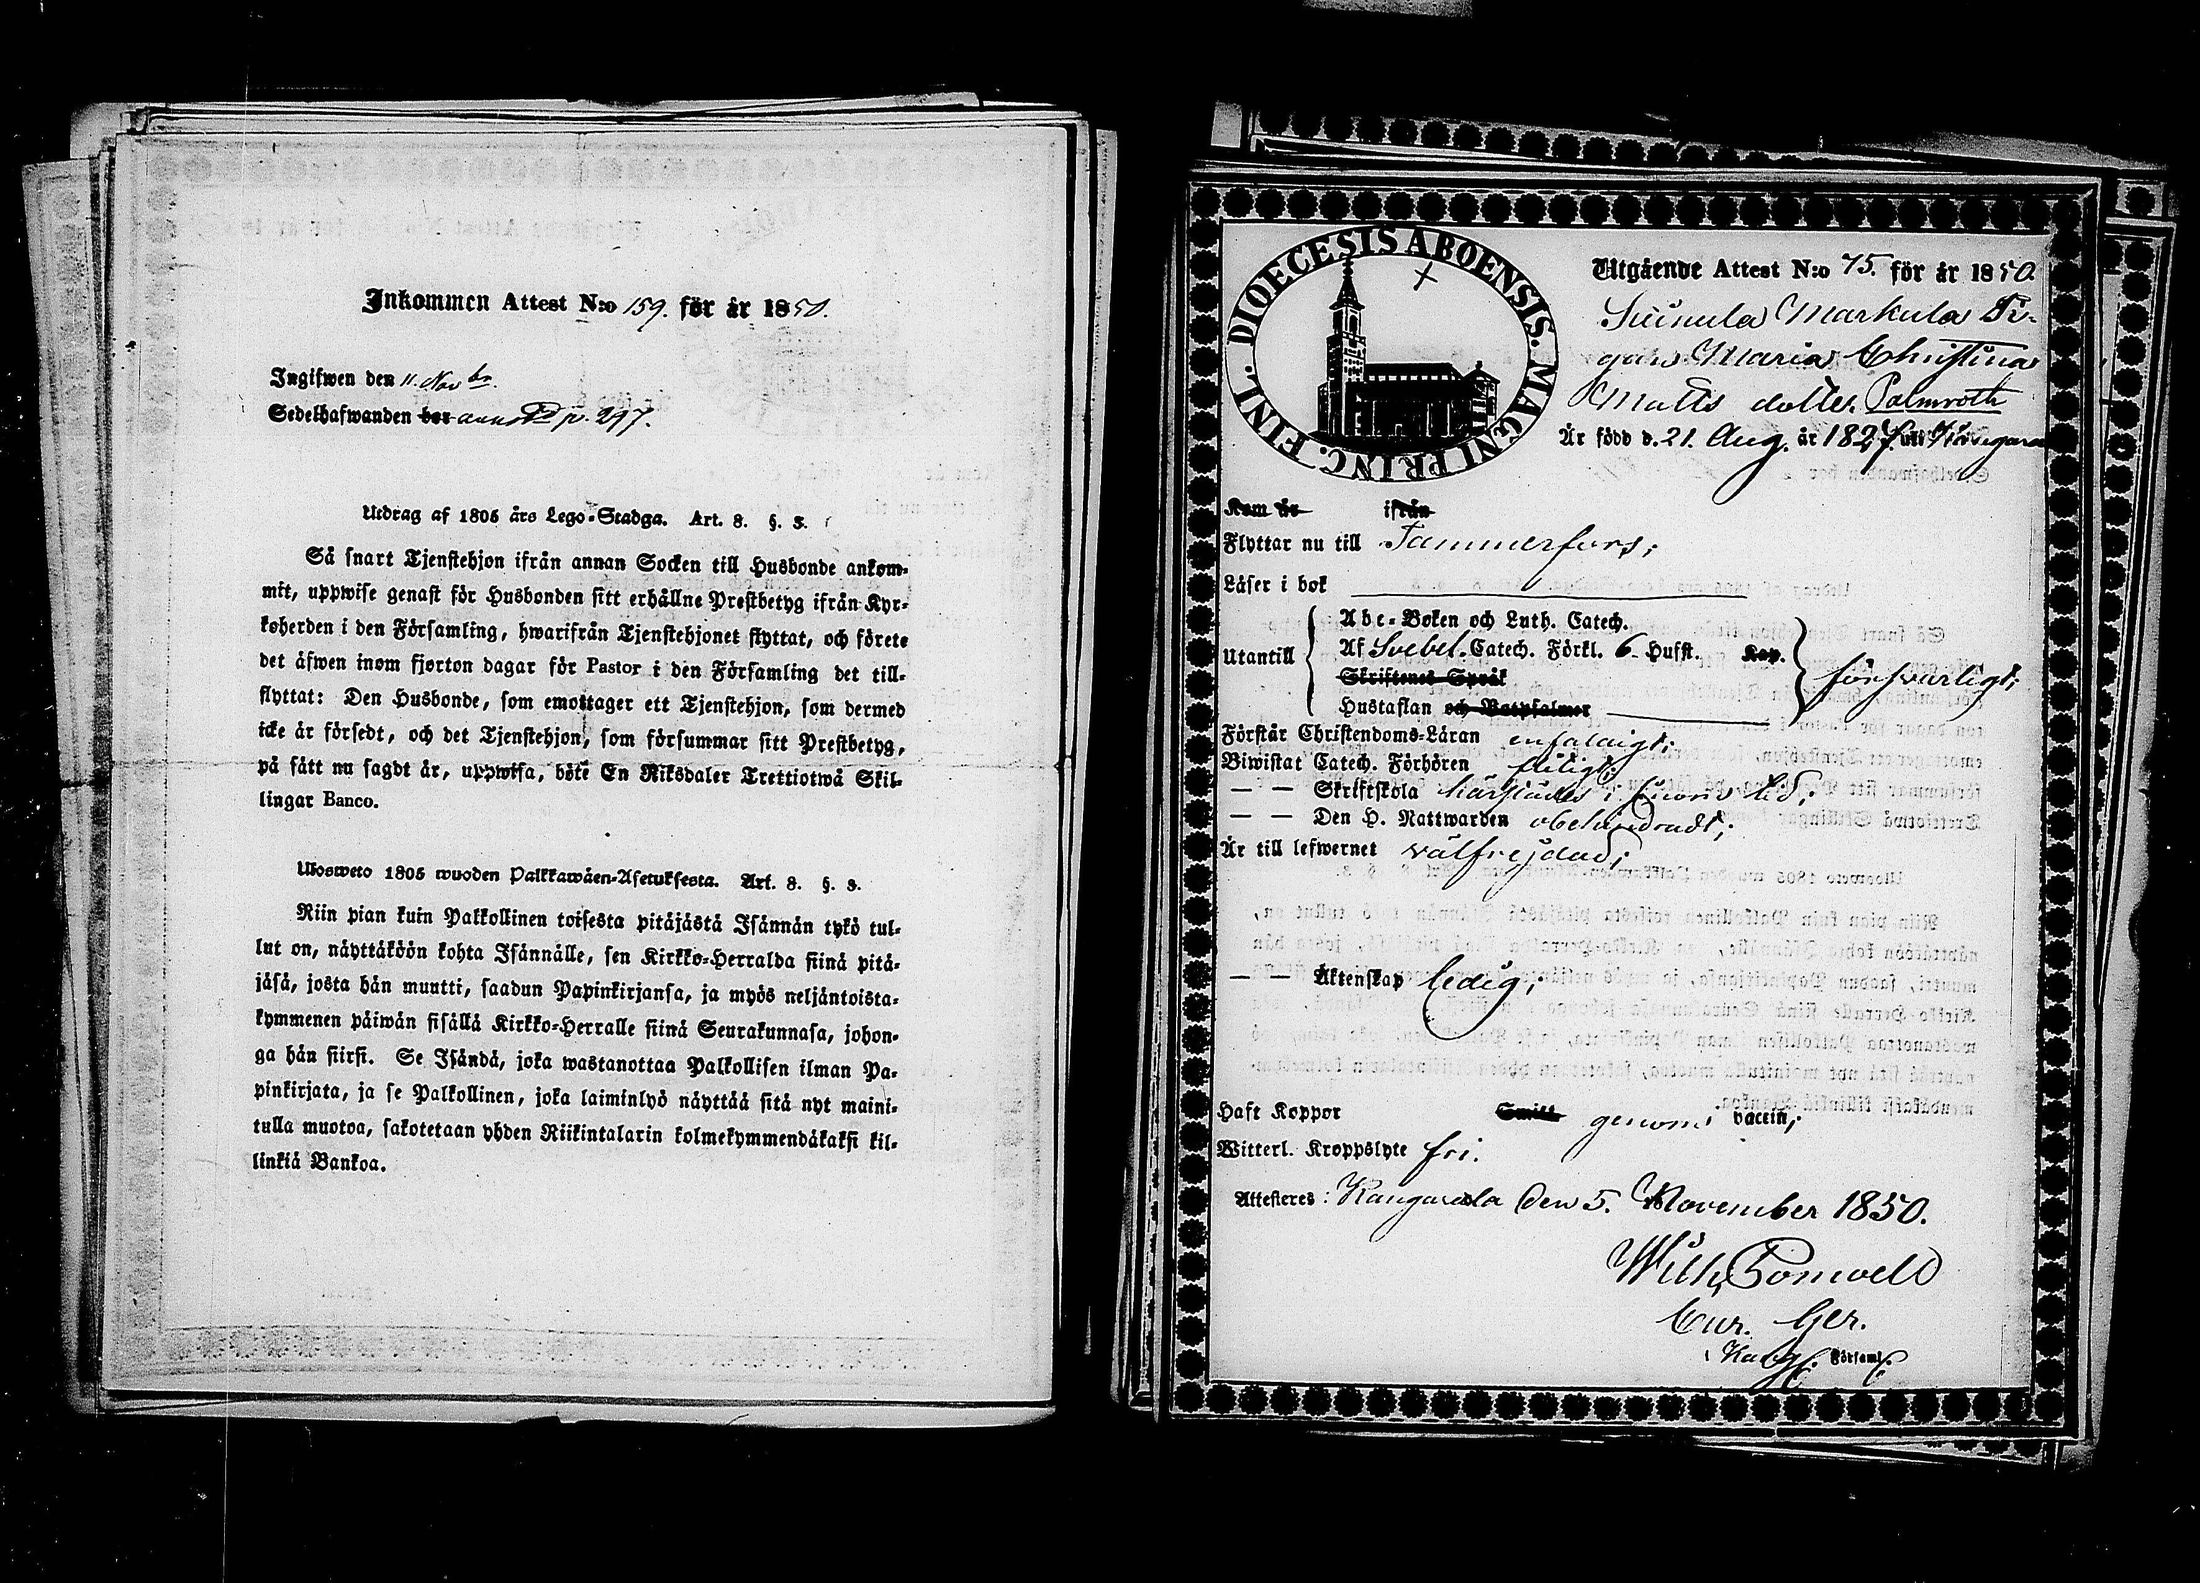 Inkommen Attest N:o 159. för år 1850.
Ingifwen den 11. Novbr.
Sedelhafwanden bor annot. p. 297.
Utdrag af 1805 års Lego-Stadga. Art. 8. §. 3.
Så snart Tjenstehjon ifrån annan Socken till Husbonde ankom-
mit, uppwise genast för Husbonden sitt erhållne Prestbetyg ifrån Kyr-
koherden i den Församling, hwarifrån Tjenstehjonet flyttat, och förete
det äfwen inom fjorton dagar för Pastor i den Församling det till-
flyttat: Den Husbonde, som emottager ett Tjenstehjon, som dermed
icke är försedt, och det Tjenstehjon, som försummar sitt Prestbetyg,
på sätt nu sagdt är, uppwisa, böte En Riksdaler Trettiotwå Skil-
lingar Banco.
Ulosweto 1805 wuoden Palkkawäen-Asetuksesta. Art. 8. §. 3.
Niin pian kuin Palkollinen toisesta pitäjästä Isännän tykö tul-
lut on, näyttäköön kohta Isännälle, sen Kirkko-Herralda siinä pitä-
jäsä, josta hän muutti, saadun Papinkirjansa, ja myös neljäntoista-
kymmenen päiwän sisällä Kirkko-Herralle siinä Seurakunnasa, johon-
ga hän siirsi. Se Isändä, joka wastanottaa Palkollisen ilman Pa-
pinkirjata, ja se Palkollinen, joka laiminlyö näyttää sitä nyt maini-
tulla muotoa, sakotetaan yhden Riikintalarin kolmekymmendäkaksi kil-
linkiä Bankoa.
DIOECESIS ABOENSIS. MAGNI PRINC. FINL.
Utgående Attest N:o 75. för år 1850.
Suinula Markula Pi-
gan Maria Christina
Matts dotter Palmroth
Är född d. 21. Aug. år 1827. uti Kangasa
Kom år ifrån
Flyttar nu till Tammerfors;
Läser i bok
Utantill
Abc-Boken och Luth. Catech.
Af Svebel. Catech. Förkl. 6. Hufst. Kap.
Skriftenes Språk
Hustaflan och Botpsalmer
försvarligt;
Förstår Christendoms-Läran enfaldigt;
Biwistat Catech. Förhören flitigt;
— — Skriftskola härstädes i sinom tid;
— — Den H. Nattwarden obehindradt;
Är till lefwernet välfrejdad;
— — Äktenskap ledig;
Haft Koppor Smitt genom vaccin;
Witterl. Kroppslyte fri.
Attesteres: Kangasala den 5. November 1850.
Wilh.
Cur. Ger.
Kang. Församl.